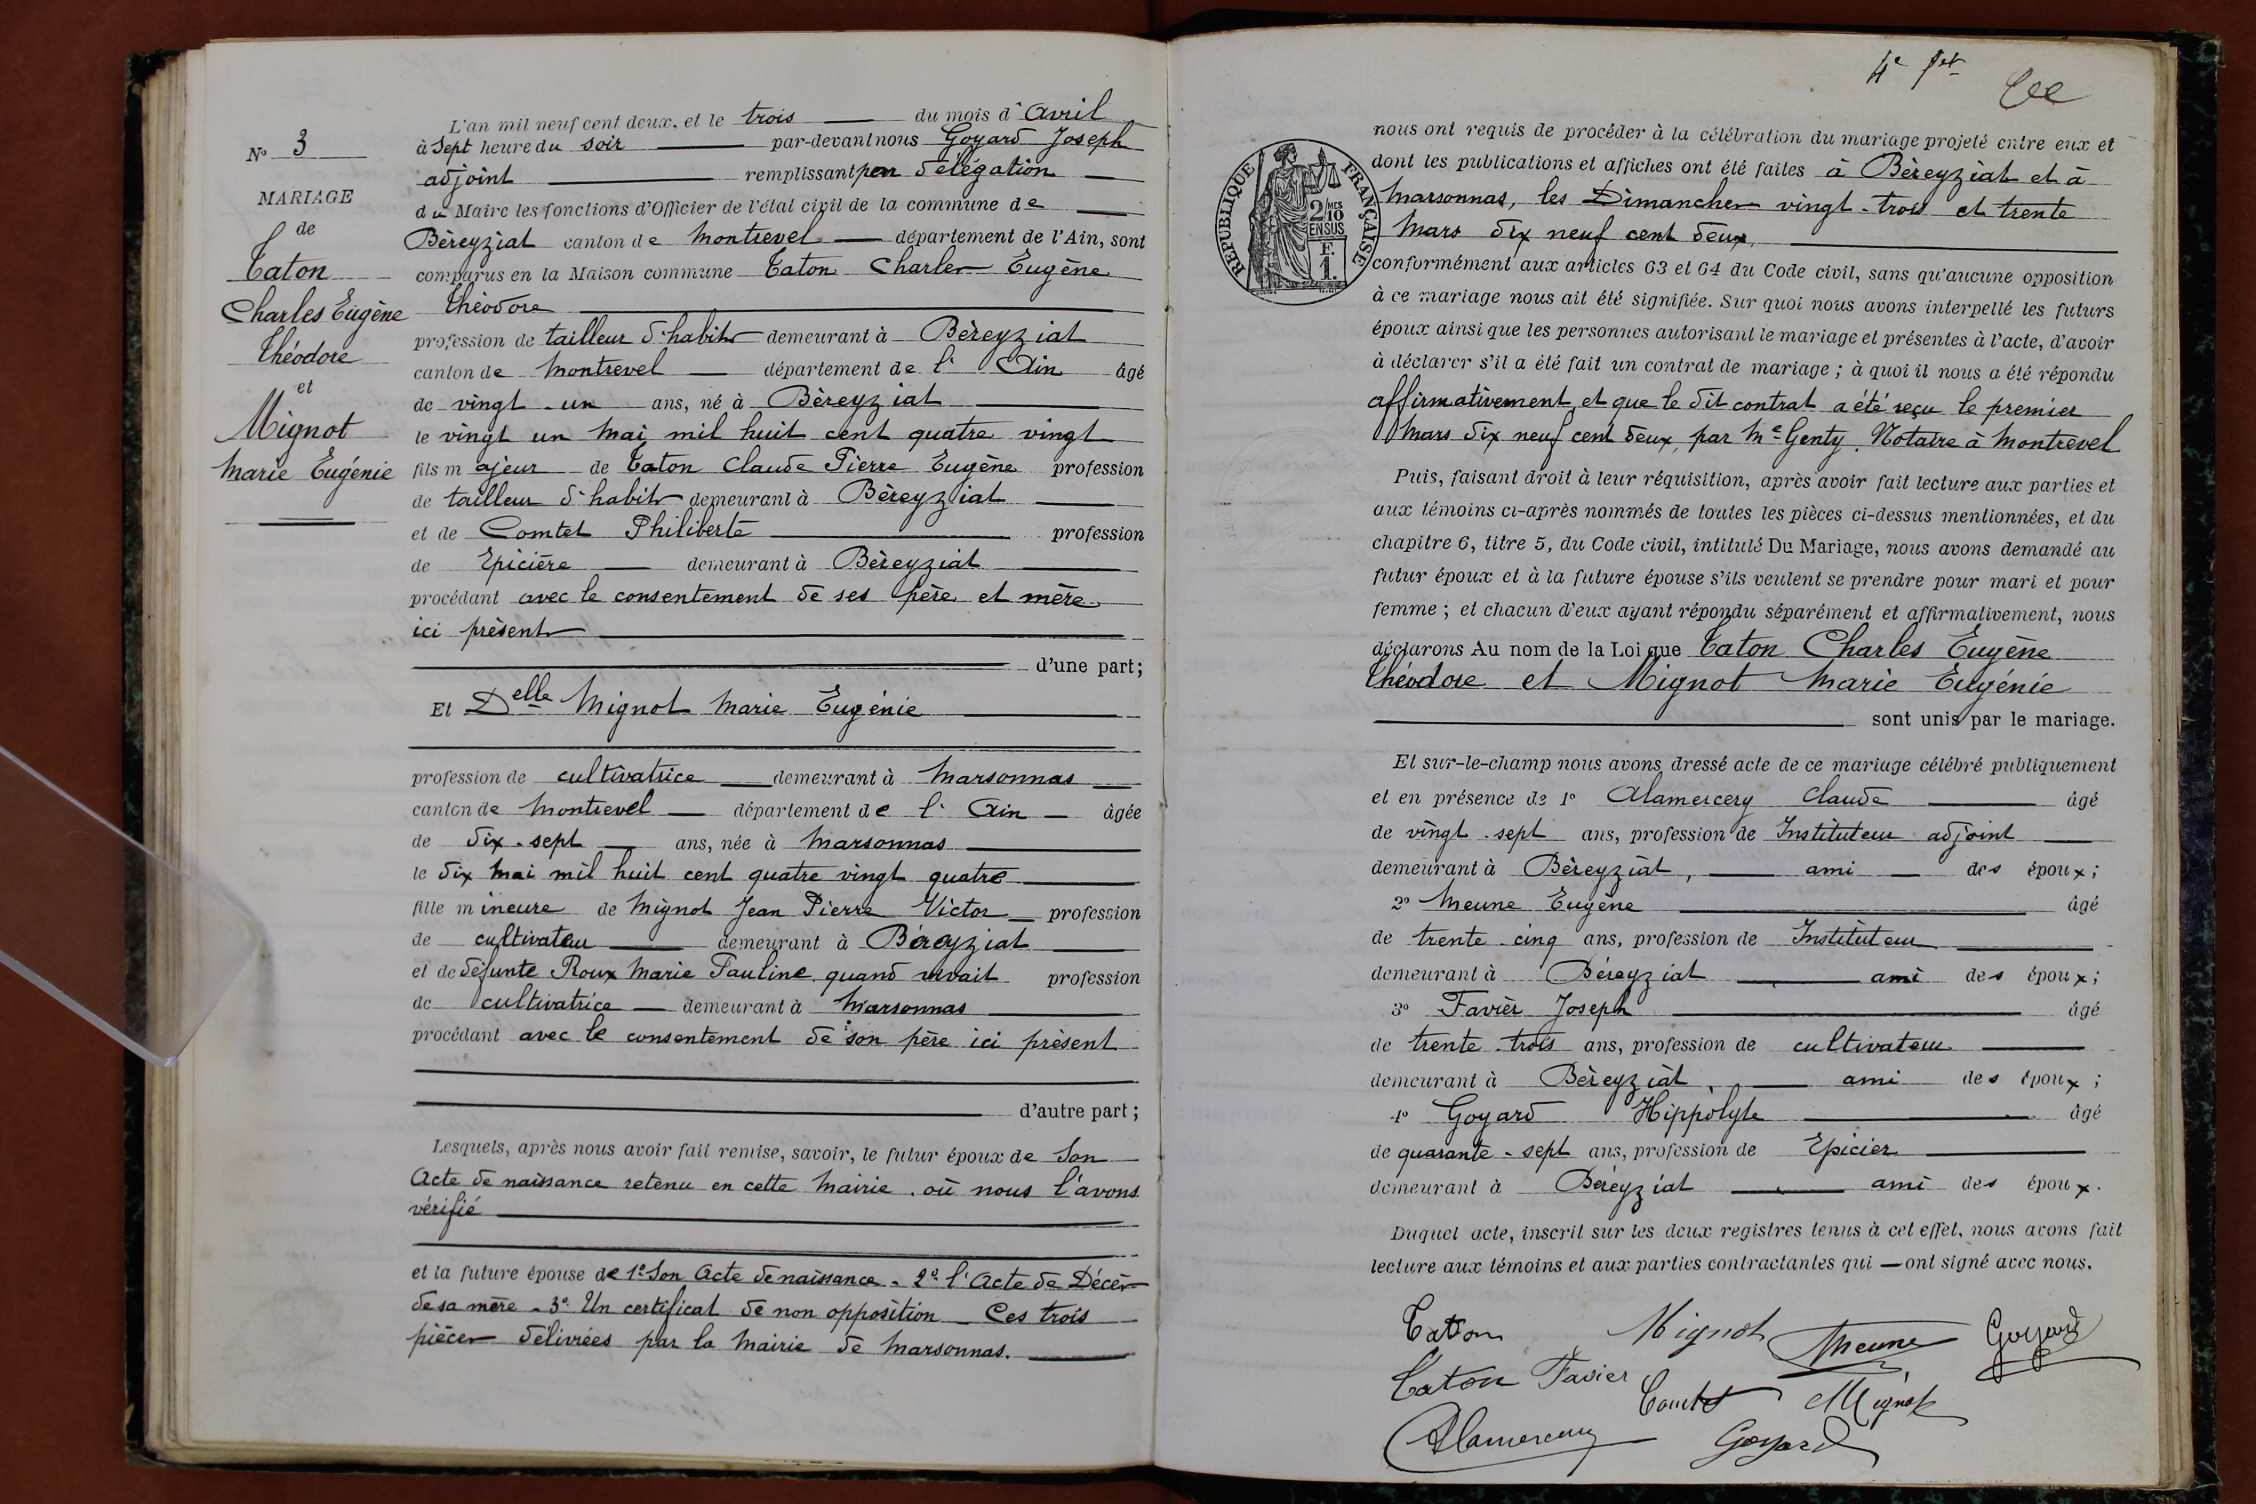 N° 3
MARIAGE
de
Taton
Charles Eugène
Théodore
et
Mignot
Marie Eugénie
L'an mil neuf cent deux, et le trois du mois d'Avril
à Sept heure du soir par-devant nous Goyard Joseph
adjoint remplissant par délégation
du Maire les fonctions d'Officier de l'état civil de la commune de
Béreyziat canton de Montrevel département de l'Ain, sont
comparus en la Maison commune Taton Charles Eugène
Théodore
profession de tailleur d'habits demeurant à Béreyziat
canton de Montrevel département de l'Ain âgé
de vingt-un ans, né à Béreyziat
le vingt un Mai mil huit cent quatre vingt
fils majeur de Taton Claude Pierre Eugène profession
de tailleur d'habits demeurant à Béreyziat
et de Comtet Philiberte profession
de Epicière demeurant à Béreyziat
procédant avec le consentement de ses père et mère
ici présents
d'une part;
Et Delle Mignot Marie Eugénie
profession de cultivatrice demeurant à Marsonnas
canton de Montrevel département de l'Ain âgée
de dix-sept ans, née à Marsonnas
le dix Mai mil huit cent quatre vingt quatre
fille mineure de Mignot Jean Pierre Victor profession
de cultivateur demeurant à Béreyziat
et de défunte Roux Marie Pauline quand vivait profession
de cultivatrice demeurant à Marsonnas
procédant avec le consentement de son père ici présent
d'autre part;
Lesquels, après nous avoir fait remise, savoir, le futur époux de Son
Acte de naissance retenu en cette Mairie, où nous l'avons
vérifié
et la future épouse de 1° Son Acte de naissance - 2° l'Acte de Décès
de sa mère - 3° Un certificat de non opposition - Ces trois
pièces délivrées par la Mairie de Marsonnas.
4e
RÉPUBLIQUE FRANÇAISE
2/10 MES
EN SUS
F.
1.
nous ont requis de procéder à la célébration du mariage projeté entre eux et
dont les publications et affiches ont été faites à Béreyziat et à
Marsonnas, les Dimanches vingt-trois et trente
Mars dix neuf cent deux,
conformément aux articles 63 et 64 du Code civil, sans qu'aucune opposition
à ce mariage nous ait été signifiée. Sur quoi nous avons interpellé les futurs
époux ainsi que les personnes autorisant le mariage et présentes à l'acte, d'avoir
à déclarer s'il a été fait un contrat de mariage; à quoi il nous a été répondu
affirmativement et que le dit contrat a été reçu le premier
Mars dix neuf cent deux, par Me Genty, Notaire à Montrevel
Puis, faisant droit à leur réquisition, après avoir fait lecture aux parties et
aux témoins ci-après nommés de toutes les pièces ci-dessus mentionnées, et du
chapitre 6, titre 5, du Code civil, intitulé Du Mariage, nous avons demandé au
futur époux et à la future épouse s'ils veulent se prendre pour mari et pour
femme; et chacun d'eux ayant répondu séparément et affirmativement, nous
déclarons Au nom de la Loi que Taton Charles Eugène
Théodore et Mignot Marie Eugénie
sont unis par le mariage.
Et sur-le-champ nous avons dressé acte de ce mariage célébré publiquement
et en présence de 1° Alamercery Claude âgé
de vingt-sept ans, profession de Instituteur adjoint
demeurant à Béreyziat, ami des époux;
2° Meune Eugène âgé
de trente-cinq ans, profession de Instituteur
demeurant à Béreyziat ami des époux;
3° Favier Joseph âgé
de trente-trois ans, profession de cultivateur
demeurant à Béreyziat, ami des époux;
4° Goyard Hippolyte âgé
de quarante-sept ans, profession de Epicier
demeurant à Béreyziat ami des époux.
Duquel acte, inscrit sur les deux registres tenus à cet effet, nous avons fait
lecture aux témoins et aux parties contractantes qui ont signé avec nous.
Taton Mignot Meune Goyard
Taton Favier Comtet Mignot
Alamercery Goyard